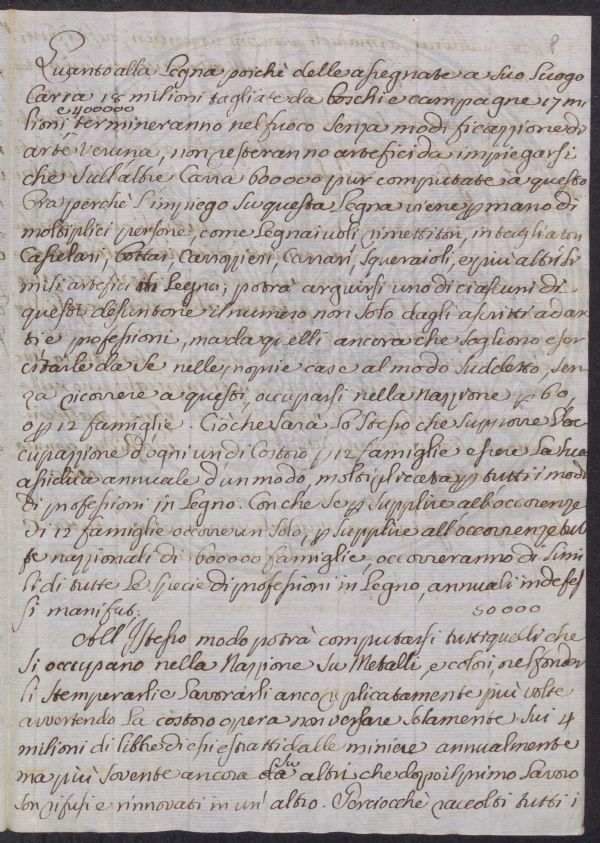 8
Quanto alla Legna poichè delle assegnate a suo Luogo
Carra 18 milioni tagliate da boschi e campagne 17 mi
e 400000
lioni termineranno nel fuoco senza modificazzione di
arte veruna, non resteranno artefici da impiegarsi
che sull'altre Carra 600000 pur computate a questo
Ora perchè l'impiego su questa Legna viene per mano di
moltiplici persone, come Legnaiuoli, rimettitori, intagliatori
Cassellari, bottai Carrozzieri, Carrari, squeraioli, e più altri si
mili artefici in Legno; potrà arguirsi uno di ciascuni di
questi desuntone il numero non solo dagli ascritti ad ar
ti e professioni, ma da quelli ancora che sogliono eser
citarle da se nelle proprie case al modo suddetto, sen
za ricorrere a questi, occuparsi nella Nazzione per 60,
o per 12 famiglie. Ciò che sarà lo stesso che supporre l'oc
cupazzione d'ogni un di costoro per 12 famiglie essere la sua
assidua annuale d'un modo, moltiplicata per tutti i modi
di professioni in Legno. Con che se per supplire all'occorenze
di 12 famiglie occorre un solo, per supplire all'occorenze tut
te nazzionali di 600000 famiglie, occorreranno di simi
li di tutte le specie di professioni in Legno, annuali indefes
si manifat:
50000
All'Istesso modo potrà computarsi tutti quelli che
si occupano nella Nazzione su Metalli, e colori, nel fonder
li stemperarli e lavorarli anco replicatamente più volte
avvertendo la costoro oppera non versare solamente sui 4
milioni di libbre di essi estratti dalle miniere annualmente
ma più sovente ancora su altri che doppo il primo lavoro
son rifusi e rinnovati in un altro. Perciocchè raccolti tutti i